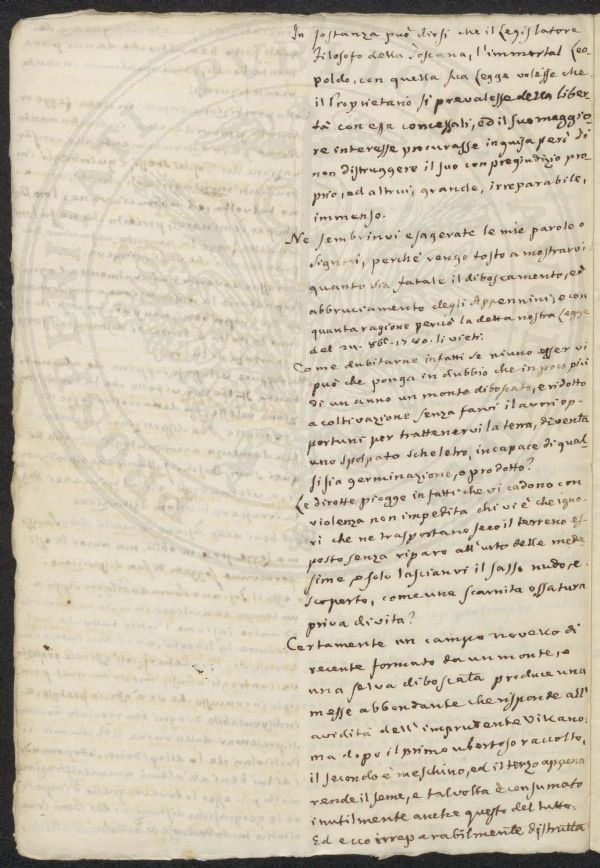 In sostanza può dirsi che il Legislatore
Filosofo della Toscana, l'immortal Leo
poldo, con quella sua Legge volesse che
il Proprietario si prevalesse della liber
tà con essa concessali, ed il suo maggio
re interesse procurasse in guisa però di
non distruggere il suo con pregiudizio pro
prio, ed altrui, grande, irreparabile,
immenso.
Ne sembrinvi esagerate le mie parole o
Signori, perchè vengo tosto a mostrarvi
quanto sia fatale il diboscamento, ed
abbruciamento degli Appennini, e con
quanta ragione perciò la detta nostra Legge
del 24. 8bre 1780. li vieti.
Come dubitarne infatti se niuno esser vi
può che ponga in dubbio che in poco più
di un anno un monte diboscato, e ridotto
a coltivazione senza farvi i lavori op-
portuni per trattenervi la terra, diventa
uno spolpato scheletro, incapace di qual
sisia germinazione, o prodotto?
Le dirotte piogge infatti che vi cadono con
violenza non impedita chi vi è che igno-
ri che ne trasportano seco il terreno es-
posto senza riparo all'urto delle mede
sime, e solo lascianvi il sasso nudo, e
scoperto, come una scarnita ossatura
priva di vita?
Certamente un campo novello di
recente formato da un monte, o
una selva diboscata produce una
messe abbondante che risponde all'
avidità dell'imprudente Villano:
ma dopo il primo ubertoso raccolto,
il secondo è meschino, ed il terzo appena
rende il seme, e talvolta è consumato
inutilmente anche questo del tutto.
Ed ecco irreparabilmente distrutta